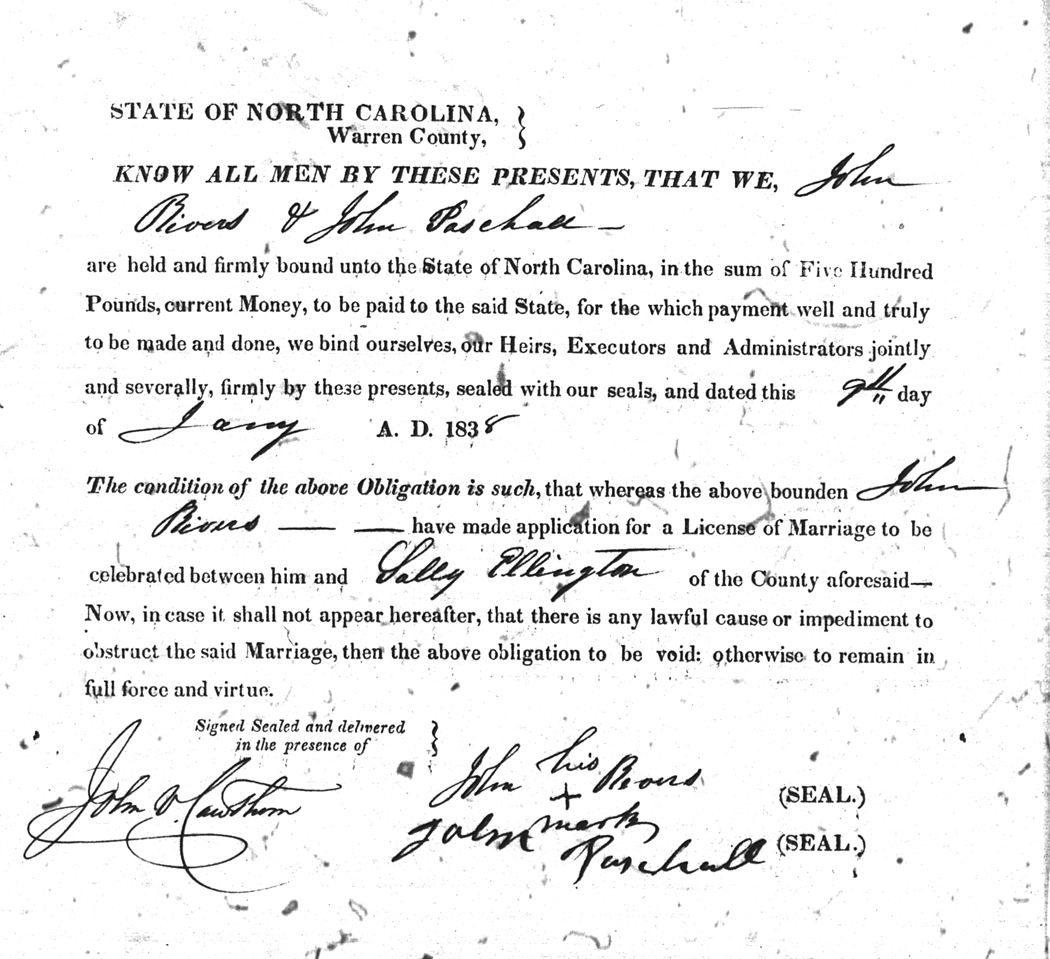 STATE OF NORTH CAROLINA, }
Warren County, }
KNOW ALL MEN BY THESE PRESENTS, THAT WE, John
Rivers & John Paschall —
are held and firmly bound unto the State of North Carolina, in the sum of Five Hundred
Pounds, current Money, to be paid to the said State, for the which payment well and truly
to be made and done, we bind ourselves, our Heirs, Executors and Administrators jointly
and severally, firmly by these presents, sealed with our seals, and dated this 9th day
of Jany A. D. 1838
The condition of the above Obligation is such, that whereas the above bounden John
Rivers — — have made application for a License of Marriage to be
celebrated between him and Sally Ellington of the County aforesaid—
Now, in case it shall not appear hereafter, that there is any lawful cause or impediment to
obstruct the said Marriage, then the above obligation to be void: otherwise to remain in
full force and virtue.
Signed Sealed and delivered }
in the presence of }
John his Rivers (SEAL.)
John V. Cawthorn + mark
John Paschall (SEAL.)